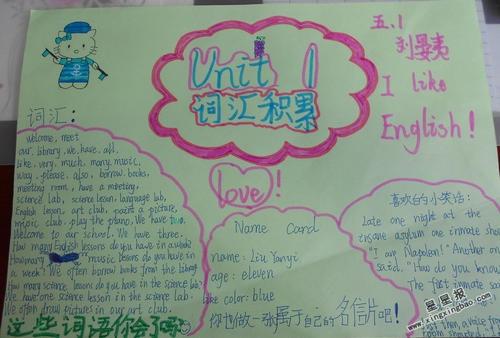 Unit 1
词汇积累
五.1
刘晏夷
I like
English!
词汇:
welcome, meet
our, library, we, have, all,
like, very, much, many, music,
way, please, also, borrow, books,
meeting room, have a meeting,
science lab, science lesson, language lab,
English lesson, art club, paint a picture,
music club, play the piano. We have two.
Welcome to our school. We have three.
How many English lessons do you have in a week?
How many music lesons do you have in
a week? We often borrow books from the library
How many science lessons do you have in the Science lab?
We have one science lesson in the science lab.
We often draw pictures in our art club.
这些词语你会了吗?
love!
Name Card
name: Liu Yanyi
age: eleven
like color: blue
你也做一张属于自己的名信片吧!
喜欢的小笑话:
Late one night at the
insane asylum one inmate shou
"I am Napoleon!" Another on
said. "How do you know
The first inmate said
then, a voice fr
room shouted, I did
星星报
www.xingxingbao.com